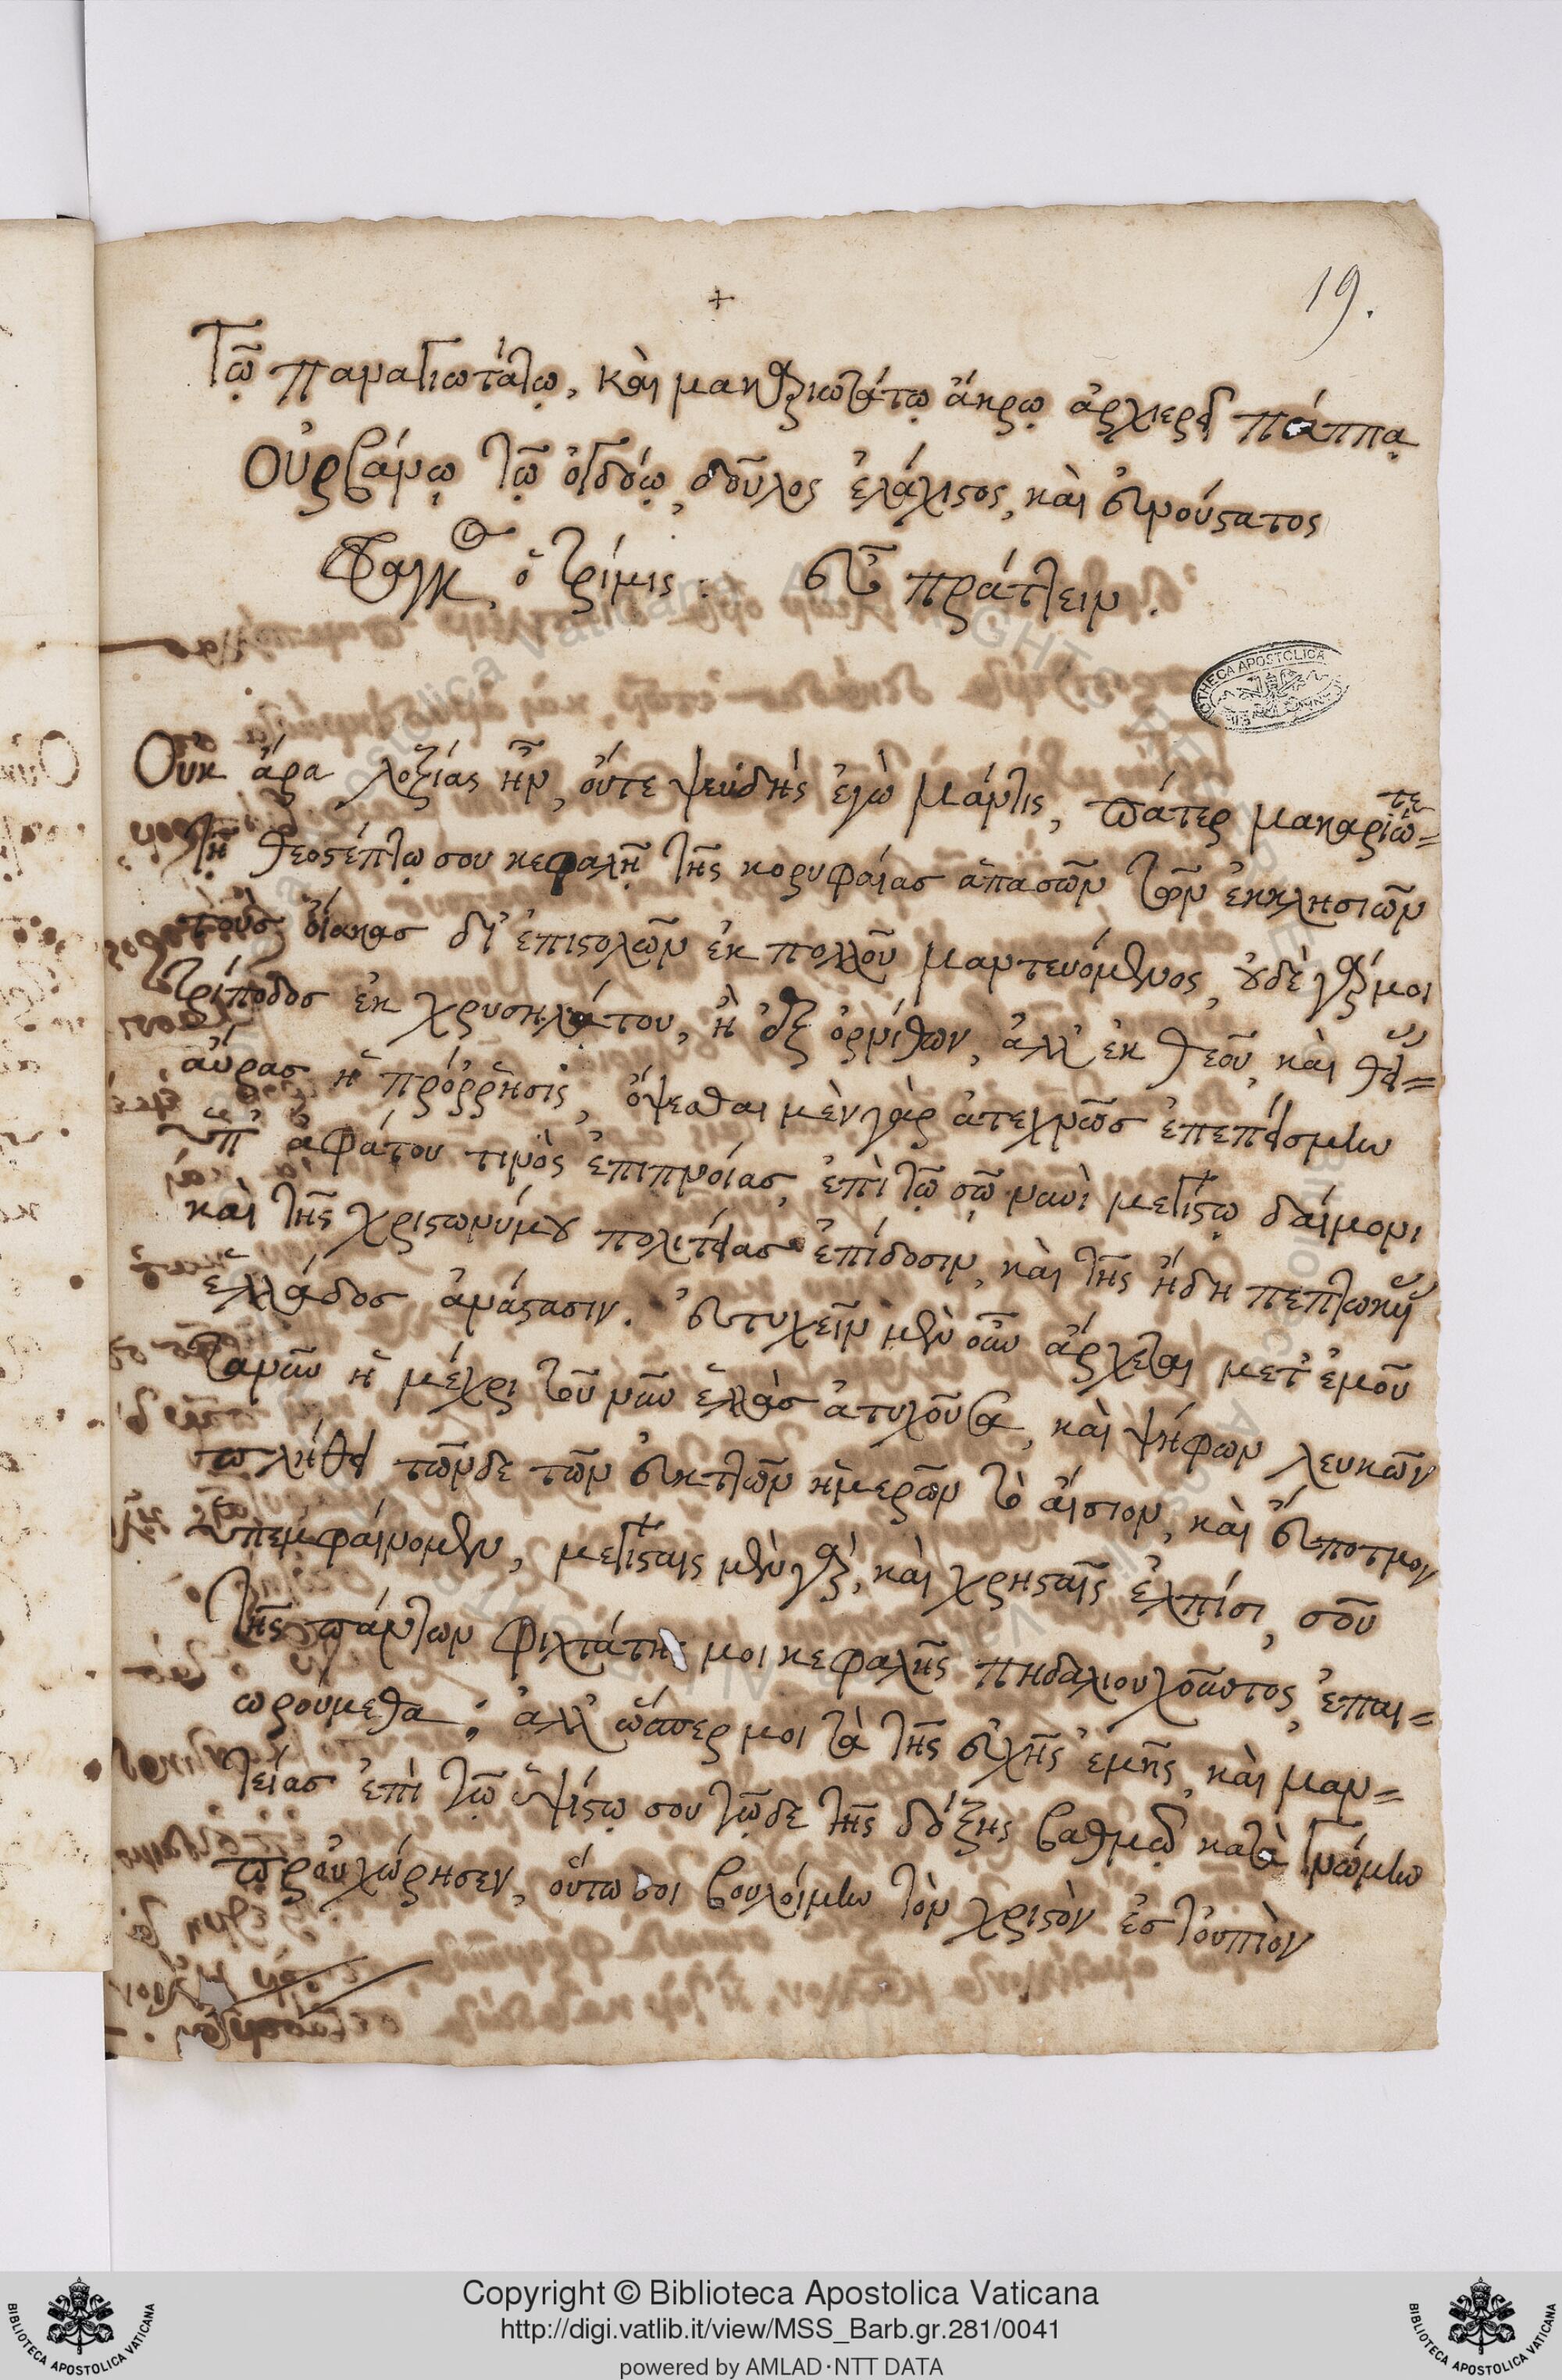 19.
+
Τῷ παναγιωτάτῳ, καὶ μακαριωτάτῳ ἄκρῳ ἀρχιερεῖ πάππᾳ
Οὐρβάνῳ τῷ ὀγδόῳ, δοῦλος ἐλάχιστος, καὶ εὐνούστατος
ὁ τζίμις: εὖ πράττειν.
Οὐκ ἄρα λοξίας ἦν, οὔτε ψευδὴς ἐγὼ μάντις, πάτερ μακαριώτατε
τῇ θεοσέπτῳ σου κεφαλῇ τῆς κορυφαίας ἁπασῶν τῶν ἐκκλησιῶν
τοὺς οἴακας δι' ἐπιστολῶν ἐκ πολλοῦ μαντευόμενος, οὐδὲ γάρ μοι
τρίποδος ἐκ χρυσηλάτου, ἢ ἐξ ὀρνίθων, ἀλλ' ἐκ θεοῦ, καὶ θεί=
αὔρας ἡ πρόρρησις, ὄψεσθαι μὲν γὰρ ἀτεχνῶς ἐπεπείσμην
ὑπ' ἀφάτου τινὸς ἐπιπνοίας, ἐπὶ τῷ σῷ ναυὶ μεγίστῳ δαίμονι
καὶ τῆς χριστωνύμου πολιτείας ἐπίδοσιν, καὶ τῆς ἤδη πεπτωκυίας
ἑλλάδος ἀνάστασιν. εὐτυχεῖν μὲν οὖν ἄρχεται μετ' ἐμοῦ
τανῦν ἡ μέχρι τοῦ νῦν ἑλλὰς ἀτυχοῦσα, καὶ ψήφων λευκῶν
πλήθει τῶνδε τῶν εὐκτῶν ἡμερῶν τὸ αἴσιον, καὶ εὔποτμον
ὑπεμφαίνομεν, μεγίσταις μὲν γάρ, καὶ χρησταῖς ἐλπίσι, σοῦ
τῆς πάντων φιλτάτης μοι κεφαλῆς πηδαλιουχοῦντος, ἐπαι=
ωρούμεθα; ἀλλ' ὥσπερ μοι τὰ τῆς εὐχῆς ἐμῆς, καὶ μαν=
τείας ἐπὶ τῷ ὑψίστῳ σου τῷδε τῆς δόξης βαθμῷ κατὰ γνώμην
προὐχώρησεν, οὕτω σοι βουλοίμην τὸν χριστὸν ἐς τοὐπιὸν
Copyright © Biblioteca Apostolica Vaticana
http://digi.vatlib.it/view/MSS_Barb.gr.281/0041
powered by AMLAD·NTT DATA